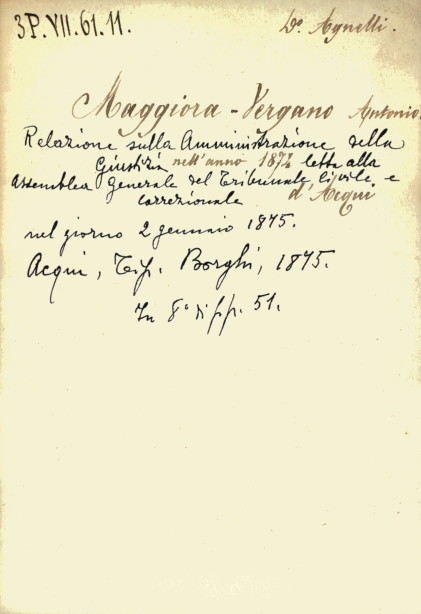 3P.VII.61.11.
Dº. Agnelli.
Maggiora-Vergano Antonio.
Relazione sulla Amministrazione della
Giustizia nell'anno 1874 letta alla
Assemblea Generale del Tribunale Civile e
correzionale d'Acqui
nel giorno 2 gennaio 1875.
Acqui, Tip. Borghi, 1875.
In 8º di pp. 51.